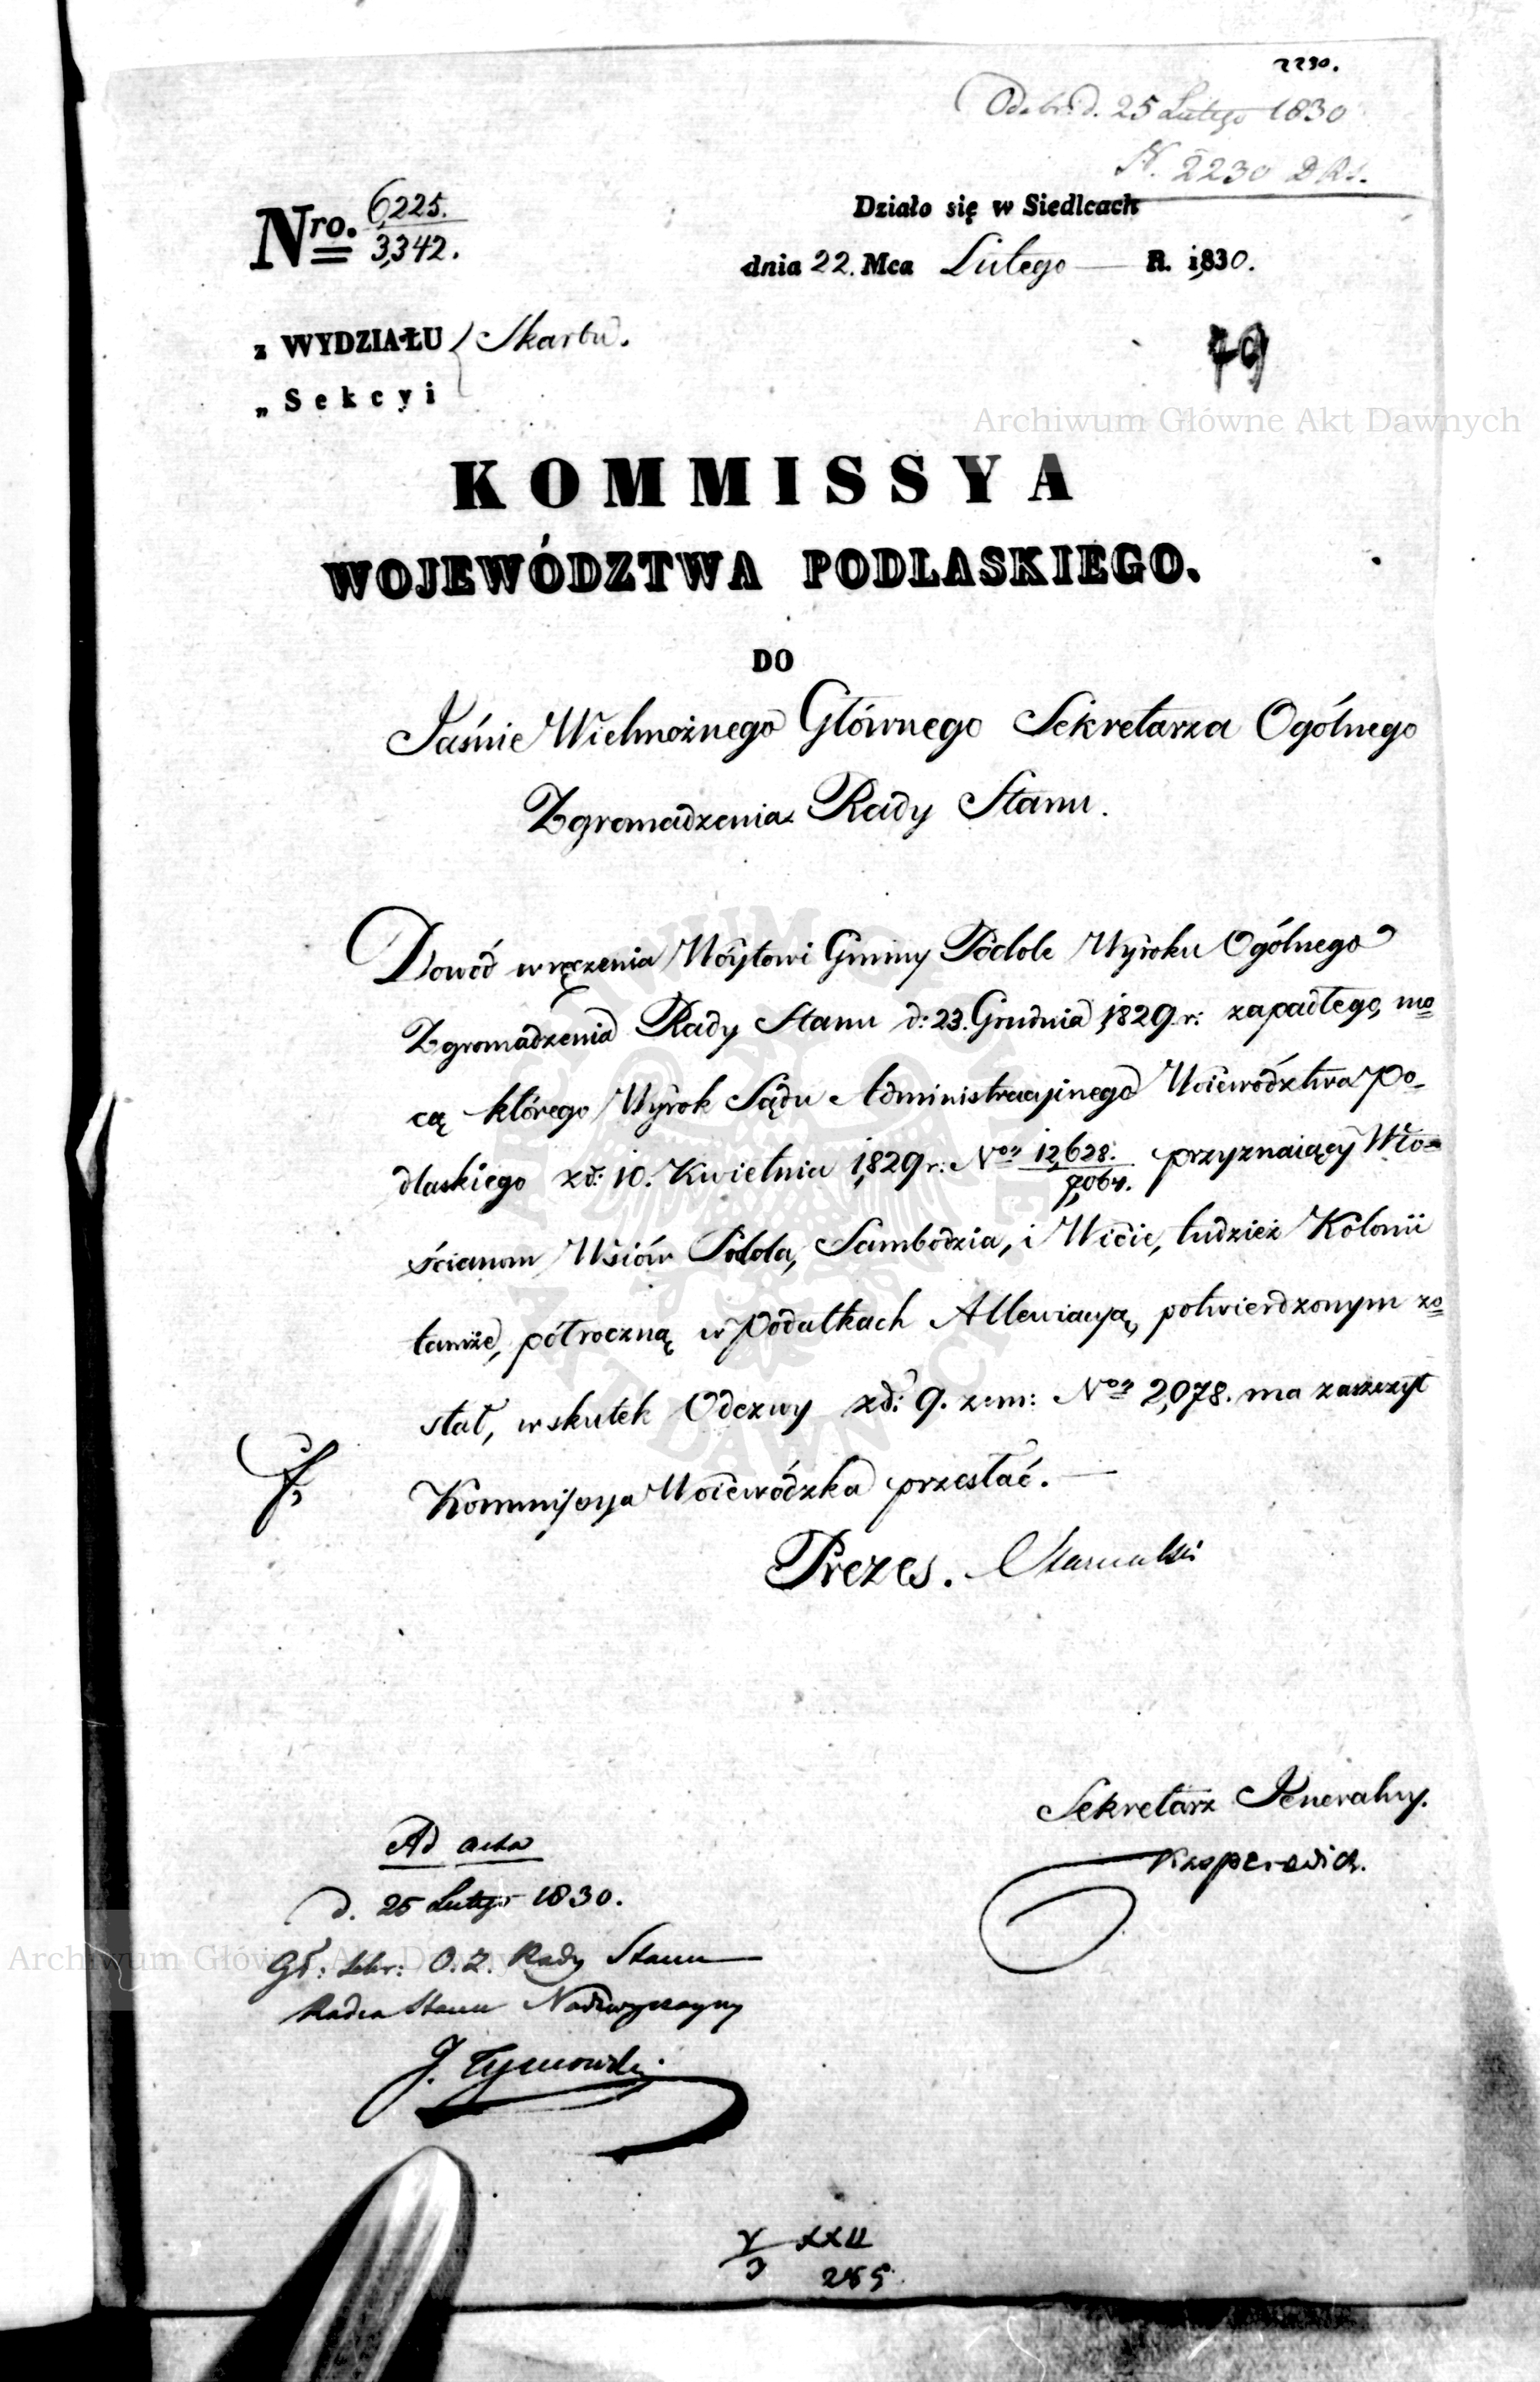 2230.
Odebr: d. 25 Lutego 1830
N. 2230 DRS.
Nro. 6,225. / 3,342.
Działo się w Siedlcach
dnia 22. Mca Lutego — R. 1830.
z WYDZIAŁU Skarbu.
„ Sekcyi
79
Archiwum Główne Akt Dawnych
KOMMISSYA
WOJEWÓDZTWA PODLASKIEGO.
DO
Jaśnie Wielmożnego Głównego Sekretarza Ogólnego
Zgromadzenia Rady Stanu.
Dowód wręczenia Wóytowi Gminy Podole Wyroku Ogólnego
Zgromadzenia Rady Stanu d: 23. Grudnia 1829 r: zapadłego, mo=
cą którego Wyrok Sądu Administracyinego Woiewództwa Po-
dlaskiego zd: 10. Kwietnia 1829 r: Nro 12,628. / 7,064. przyznaiący Wło=
ścianom Wsiów Podola, Sambodzia, i Wicie, tudzież Kolonii
tamże, półroczną w Podatkach Allewiacyą, potwierdzonym zo=
stał, w skutek Odezwy zd: 9. z. m: Nro 2,078. ma zaszczyt
Kommissya Woiewódzka przesłać. —
Prezes.
Sekretarz Jeneralny.
Kasperowicz.
Ad acta
d. 25 Lutego 1830.
Gł: Sekr: O. Z. Rady Stanu
Radca Stanu Nadzwyczayny
J. Tymowski
Archiwum Główne Akt Dawnych
V/3 XXII
265